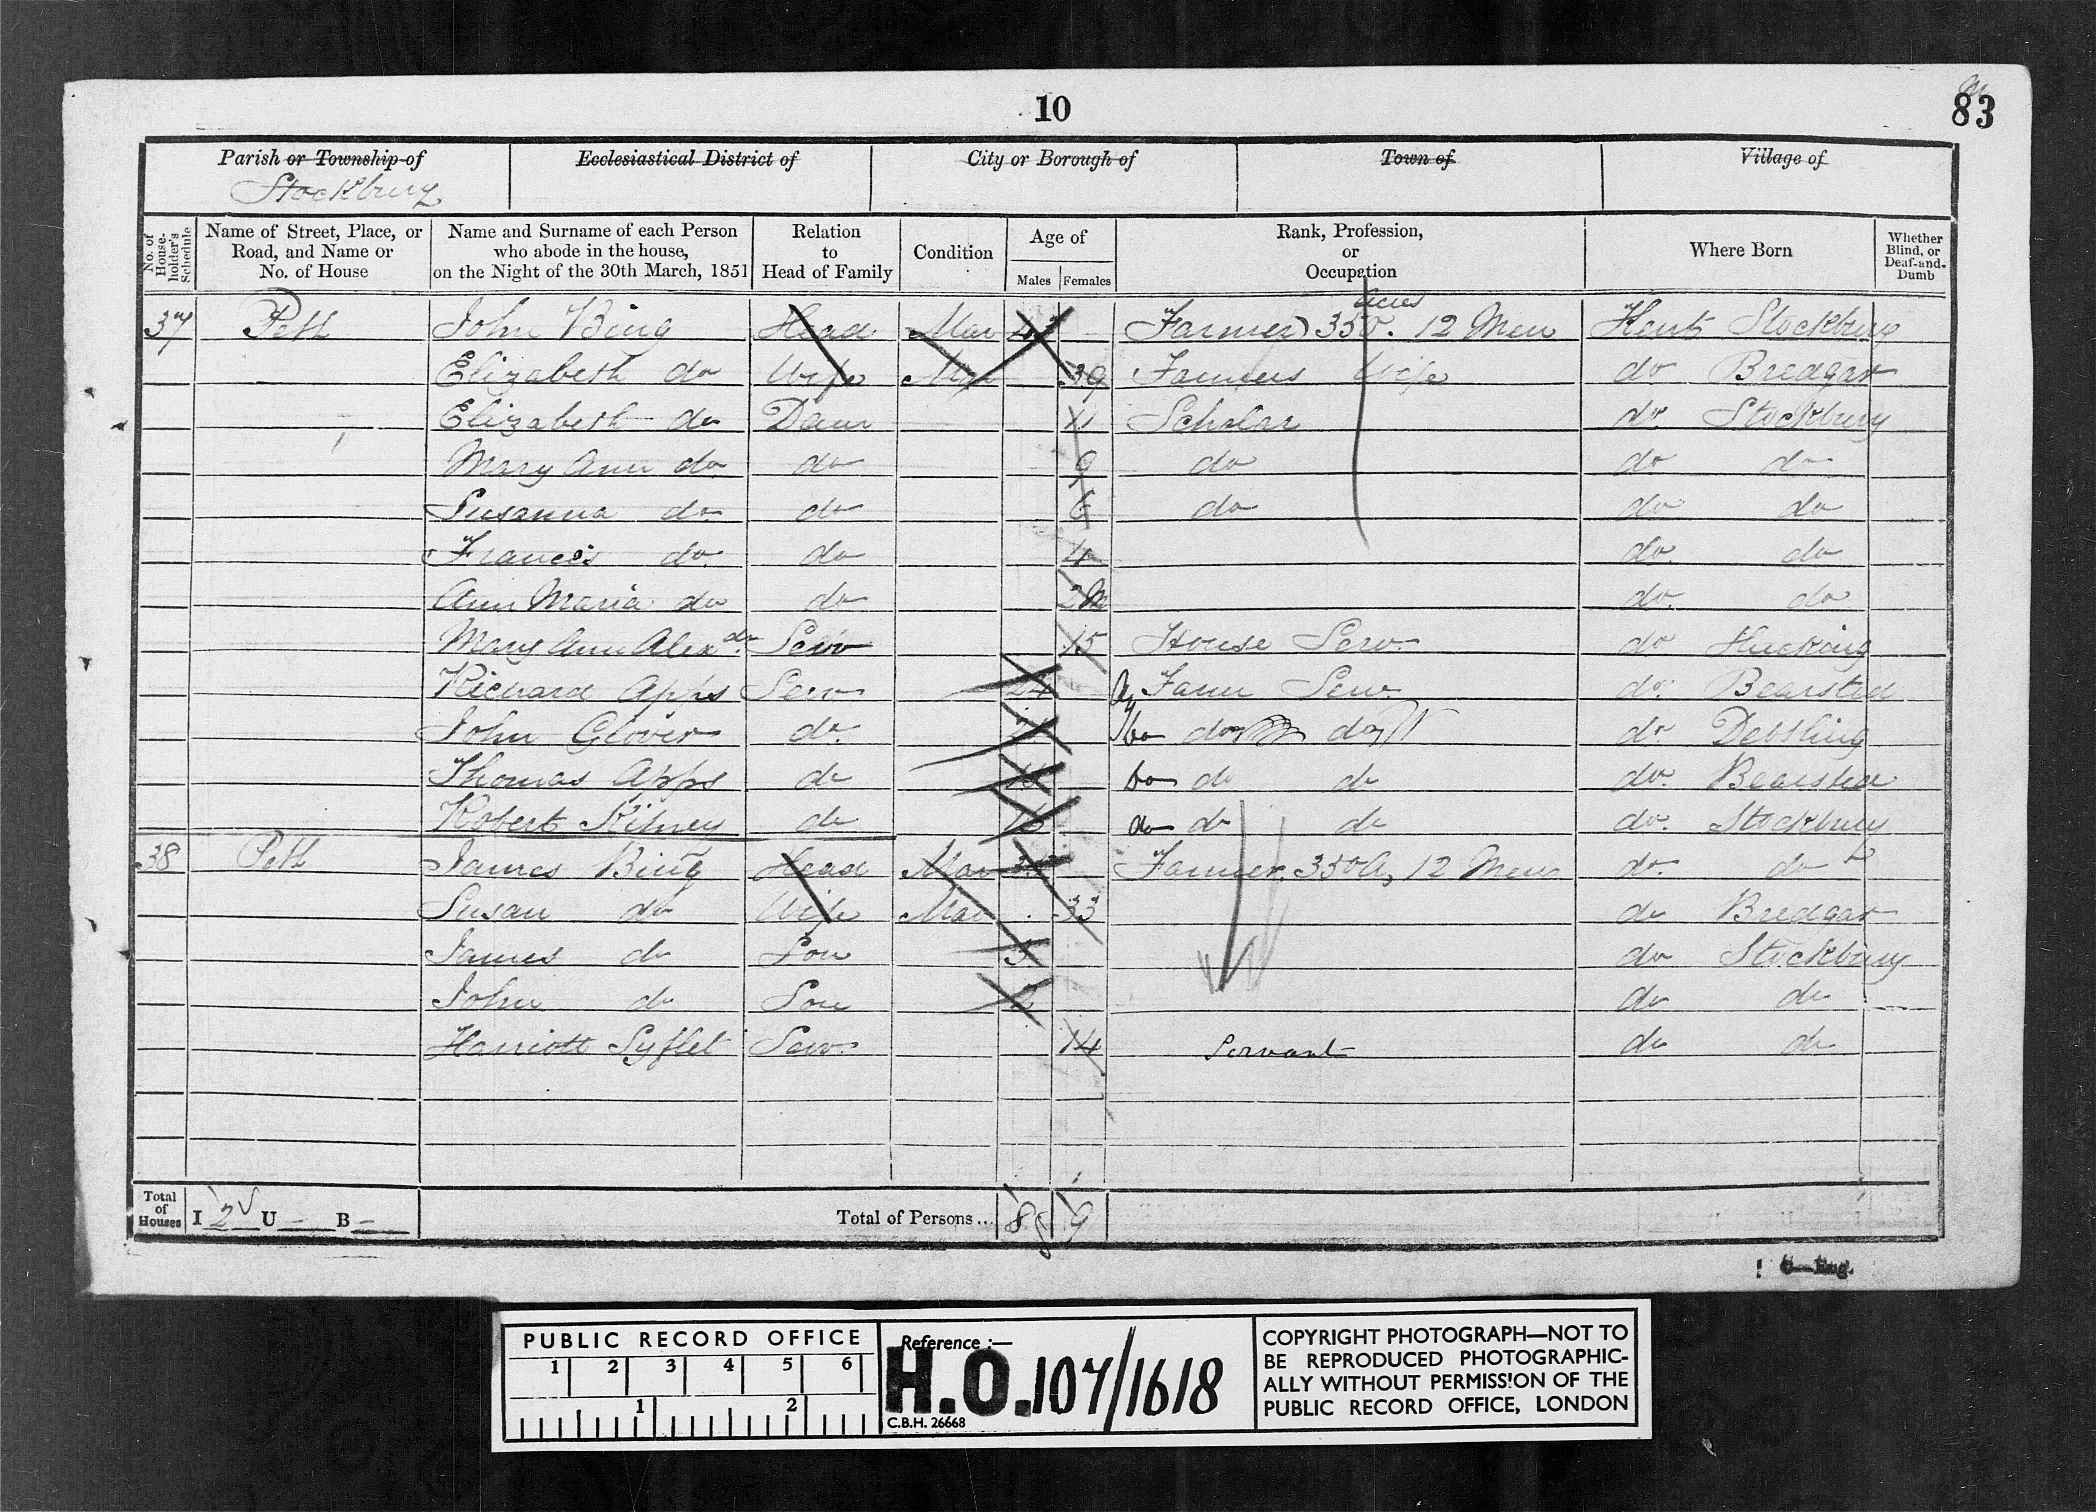 10
83
Parish or Township of
Ecclesiastical District of
City or Borough of
Town of
Village of
Stockbury
No. of House-holder's Schedule
Name of Street, Place, or Road, and Name or No. of House
Name and Surname of each Person who abode in the house, on the Night of the 30th March, 1851
Relation to Head of Family
Condition
Age of
Males Females
Rank, Profession, or Occupation
Where Born
Whether Blind, or Deaf-and-Dumb
37 Pett John Bing Head Mar Farmer 350 Acres 12 Men Kent Stockbury
Elizabeth do Wife Mar 39 Farmers Wife do Bredgar
Elizabeth do Daur 11 Scholar do Stockbury
Mary Ann do do 9 do do do
Susanna do do 6 do do do
Frances do do 4 do do
Ann Maria do do 2M do do
Mary Ann Alexdr Serv 15 House Serv do Hucking
Richard Apps Serv 24 Farm Serv do Bearsted
John Glover do do do do Dettling
Thomas Apps do do do do Bearsted
Robert Kitney do 16 do do do do Stockbury
38 Pett James Bing Head Mar Farmer 350 A, 12 Men do do
Susan do Wife Mar 33 do Bredgar
James do Son 3 do Stockbury
John do Son 2 do do
Harriott Syflet Serv 14 Servant do do
Total of Houses I 2 U — B —
Total of Persons ... 8 9
PUBLIC RECORD OFFICE
1 2 3 4 5 6
1 2
Reference :—
H.O. 107/1618
C.B.H. 26668
COPYRIGHT PHOTOGRAPH—NOT TO
BE REPRODUCED PHOTOGRAPHIC-
ALLY WITHOUT PERMISSION OF THE
PUBLIC RECORD OFFICE, LONDON